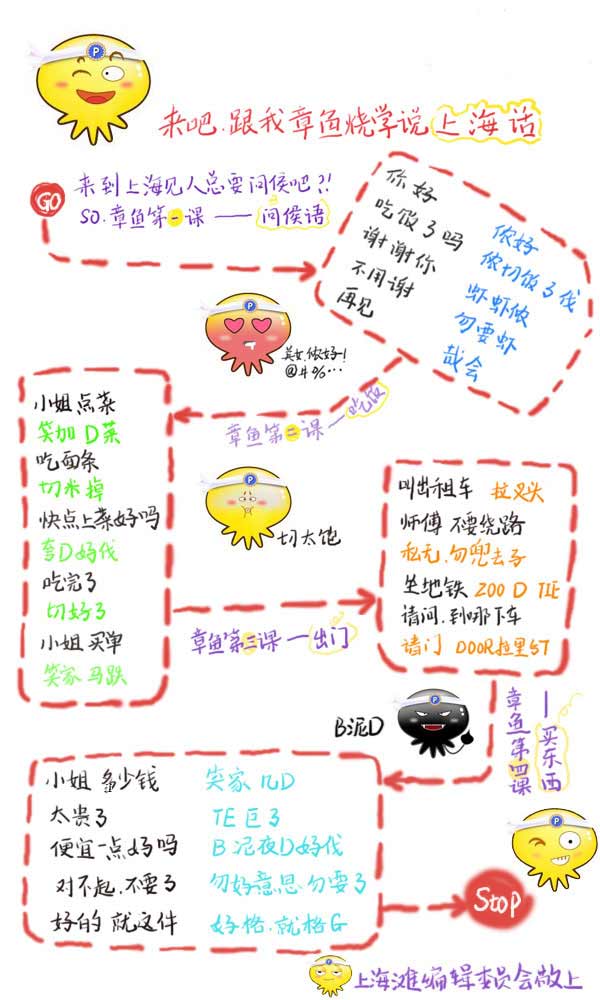 来吧.跟我章鱼烧学说上海话
GO
来到上海见人总要问侯吧?!
SO.章鱼第一课——问侯语
你好
吃饭了吗
谢谢你
不用谢
再见
侬好
侬切饭了伐
虾虾侬
勿要虾
哉会
美女侬好!
@#%…
章鱼第二课—吃饭
小姐点菜
笑加D菜
吃面条
切米掉
快点上菜好吗
夸D好伐
吃完了
切好了
小姐买单
笑家马跌
切太饱
章鱼第三课—出门
叫出租车 拉叉头
师傅不要绕路
私无.勿兜去子
坐地铁 ZOO D TIE
请问.到哪下车
请门 DOOR拉里5T
章鱼第四课
—买东西
B泥D
小姐多少钱 笑家几D
太贵了 TE巨了
便宜一点好吗 B泥夜D好伐
对不起.不要了 勿好意思.勿要了
好的 就这件 好格.就格G
Stop
上海滩编辑委员会敬上